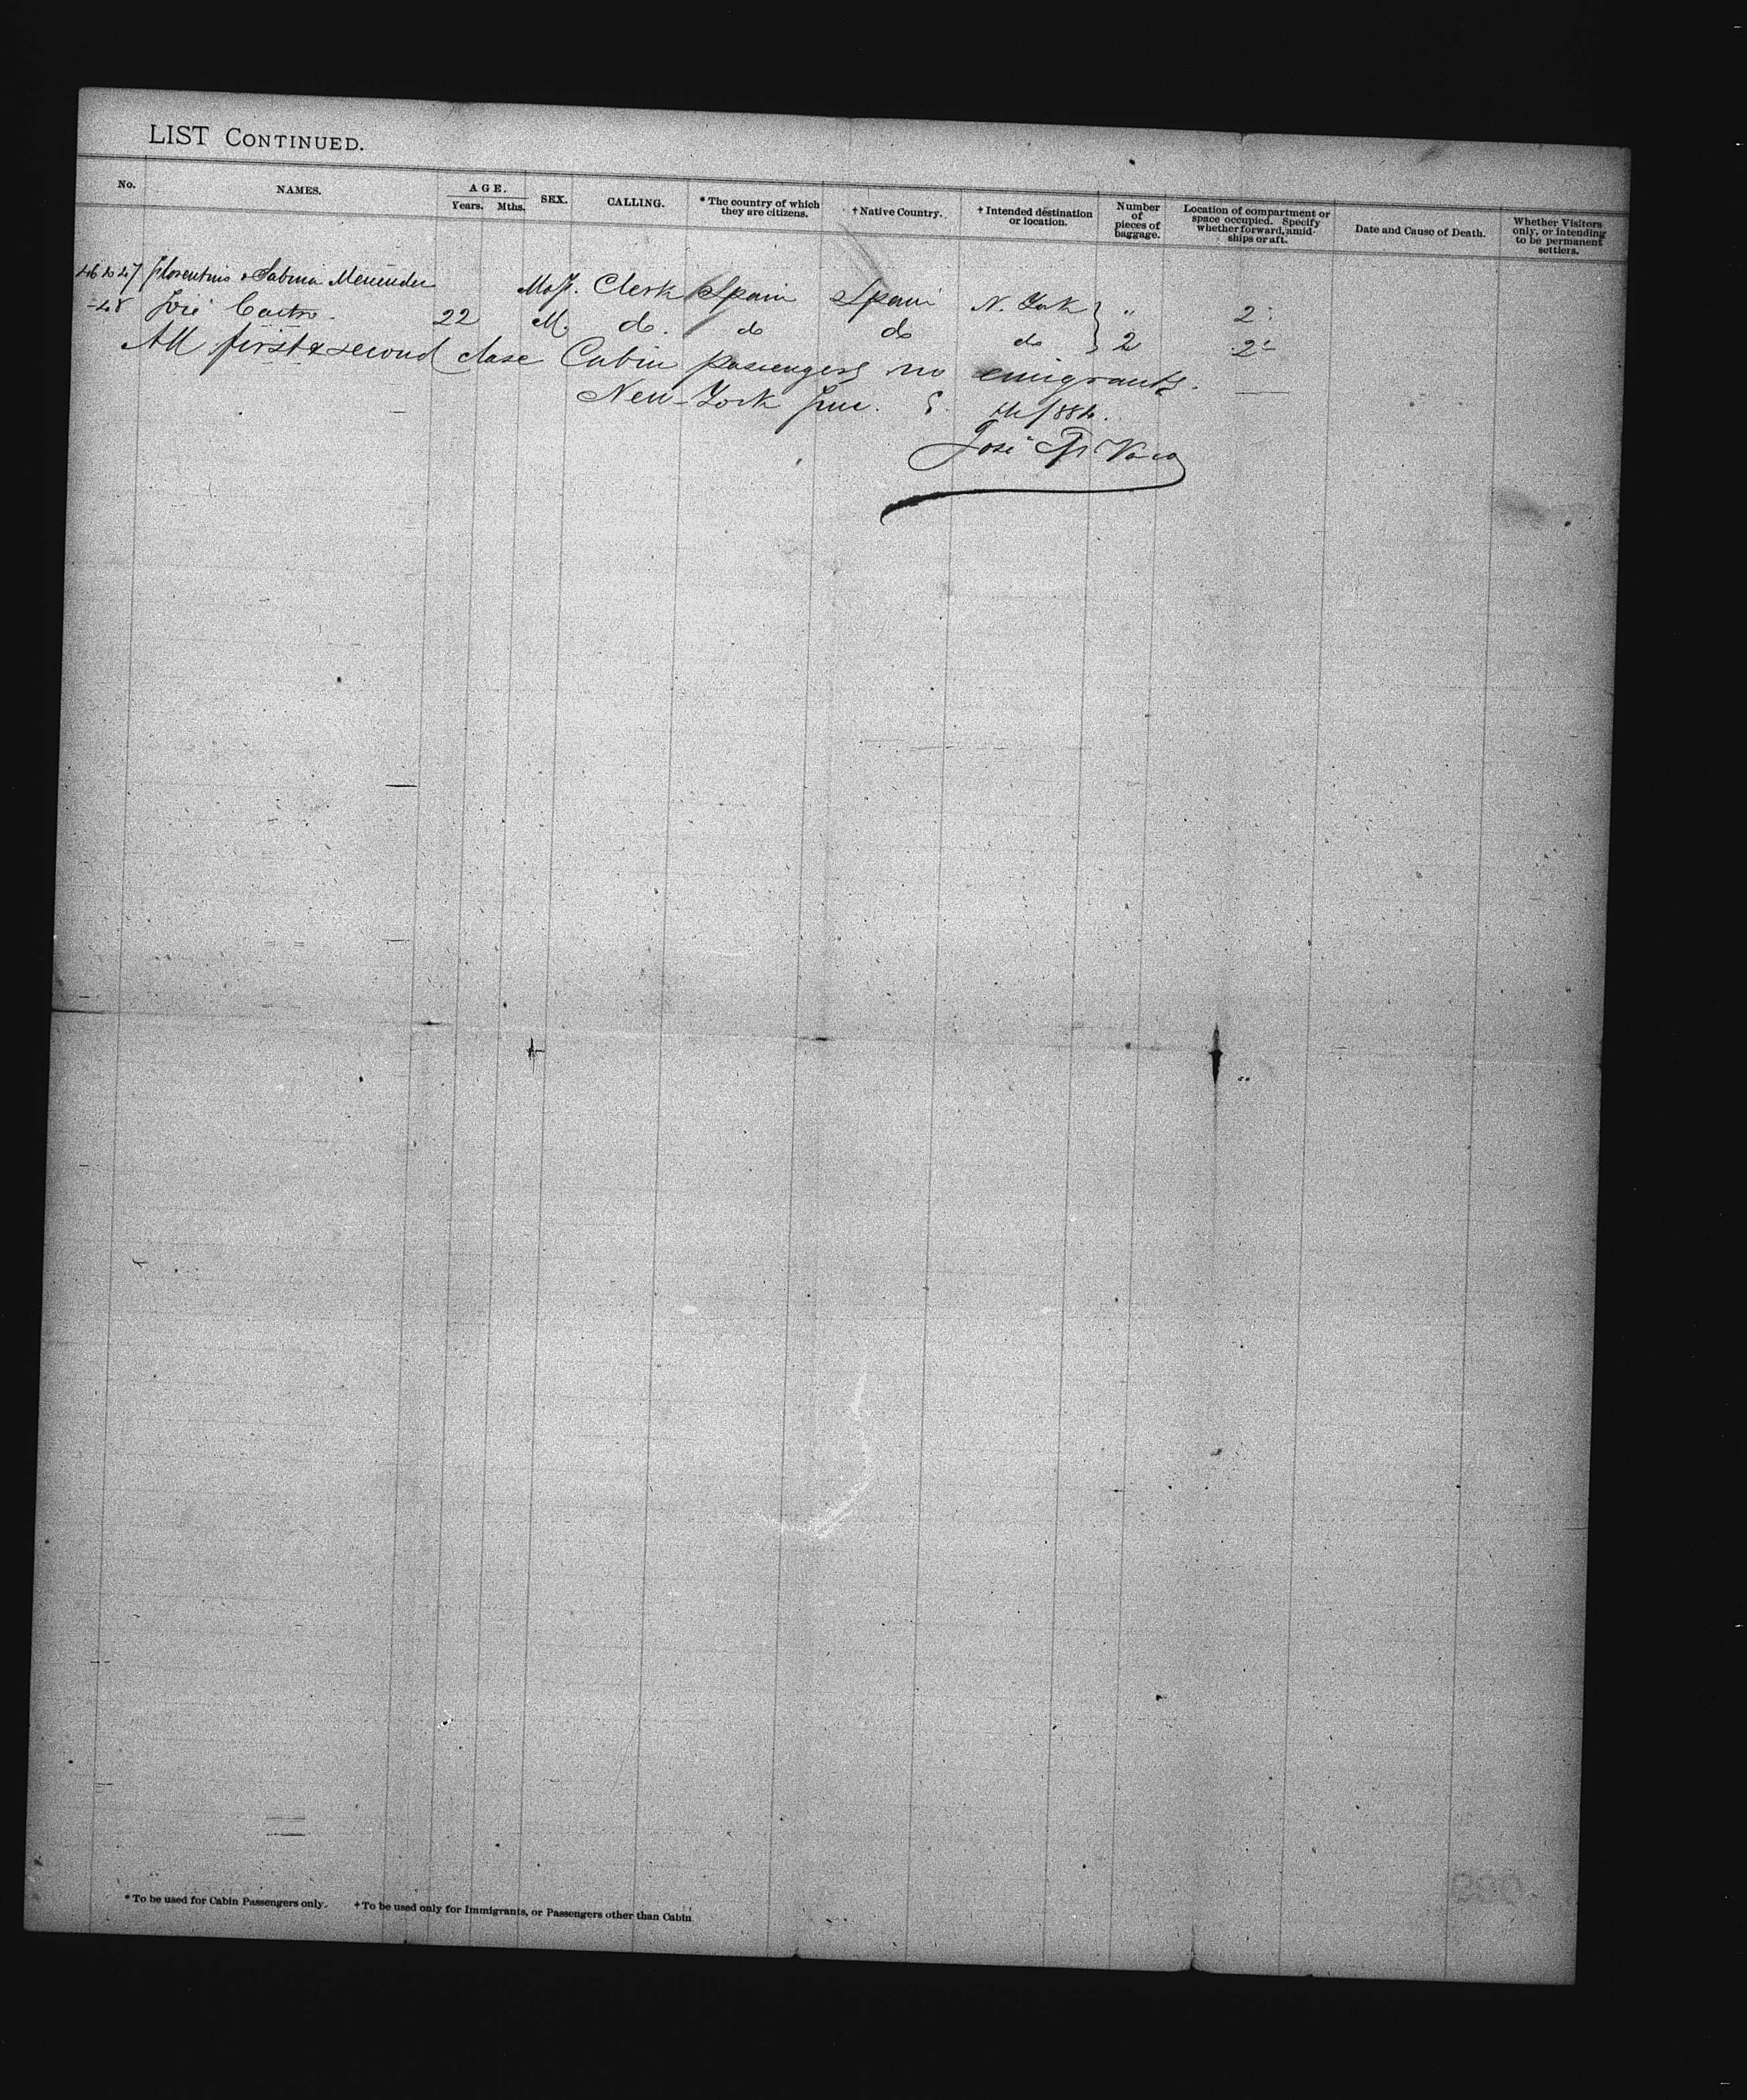 LIST CONTINUED.
No. NAMES. AGE. Years. Mths. SEX. CALLING. * The country of which they are citizens. † Native Country. † Intended destination or location. Number of pieces of baggage. Location of compartment or space occupied. Specify whether forward, amidships or aft. Date and Cause of Death. Whether Visitors only, or intending to be permanent settlers.
46 to 47 Florentino & Sabina Menendez M & f. Clerk Spain Spain N. York " 2ª
" 48 José Castro. 22 M. do. do do do 2 2ª
All first & second clase Cabin passengers no emigrants.
New-York June. 5. th/1884.
José
* To be used for Cabin Passengers only. † To be used only for Immigrants, or Passengers other than Cabin